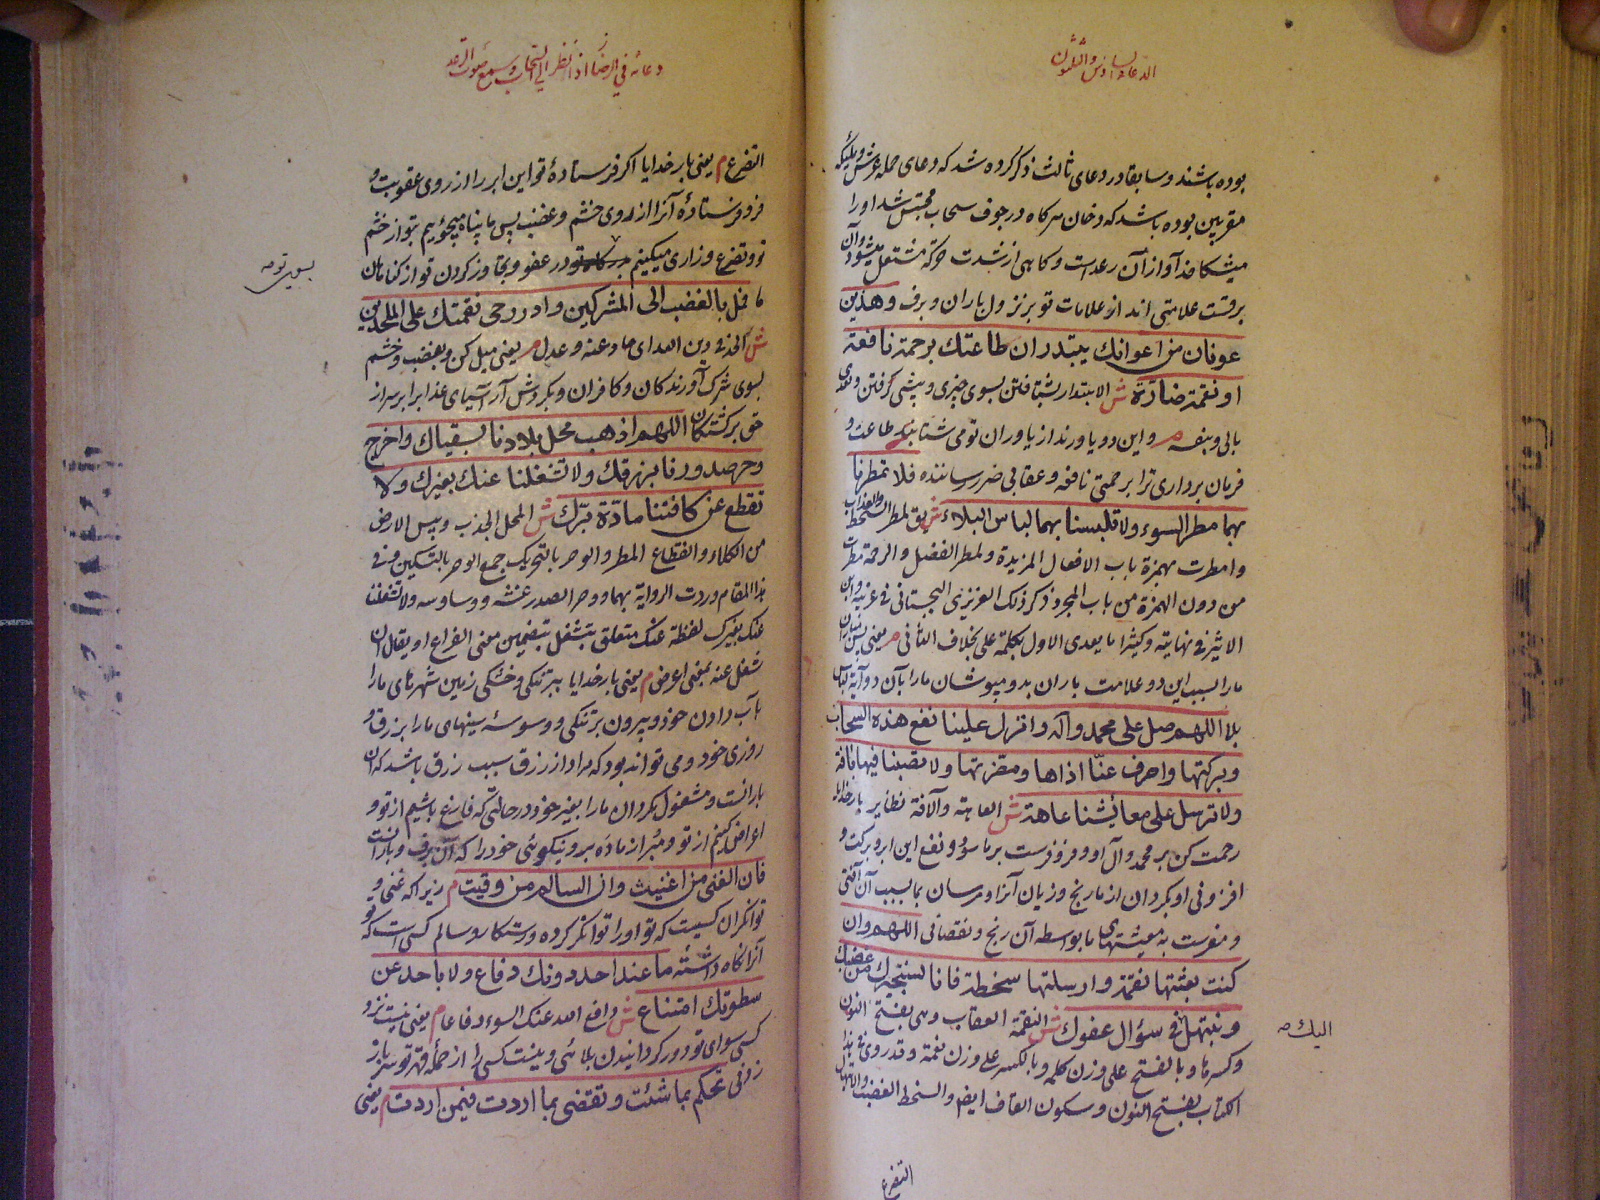 الدعاء السادس والثلثون
بوده باشند و سابقا در دعای ثالث ذکر کرده شد که دعای حمله عرش و ملئکه
مقربین بوده باشد که دخان هرکاه در جوف سحاب محتبس شد او را
میشکافد آواز آن رعد است و کاهی از شدت حرکة مشتعل میشود و آن
برقست علامتی اند از علامات تو بر نزول باران و برف وهذين
عونان من اعوانك يبتدران طاعتك برحمة نافعة
او نقمة ضارة ش الابتدار شتافتن بسوی چیزی و پیشی کرفتن وتعدی
بالی و بنفسه م و این دو یاورند از یاوران تو می شتابند بر طاعت و
فرمان برداری ترا برحمتی نافعه و عقابی ضرر رساننده فلا تمطرنا
بهما مطر السوء ولا تلبسنا بهما لباس البلاء ش يق لمطر السخط والعذاب
وامطرت بهمزة باب الافعال المزيدة ولمطر الفضل والرحمة مطرت
من دون الهمزة من باب المجرد ذكر ذلك العزيزى السجستانى فى غريبه وابن
الاثير فى نهايته وكثيرا ما يعدى الاول بكلمة على بخلاف الثانى م یعنی پس مباران
ما را بسبب این دو علامت باران بد و مپوشان ما را بآن دو آیة لباس
بلا اللهم صل على محمد وآله وانزل علينا نفع هذه السحاب
وبركتها واصرف عنا اذاها ومضرتها ولا تصبنا فيها بافة
ولا ترسل على معايشنا عاهة ش العاهة والآفة نظایر بار خدایا
رحمت کن بر محمد و آل او و فرو فرست بر ما سود و نفع این ابر و برکت و
افزونی او و بکردان از ما رنج و زیان آنرا و مرسان بما بسبب آن آفتی
و مفرست به معیشتهای ما بواسطه آن رنج و نقصانی اللهم وان
كنت بعثتها نقمة وارسلتها سخطة فانا نستجيرك من غضبك
ونبتهل فى سؤال عفوك ش النقمة العقاب وهى بفتح النون
وكسرها وبالفتح على وزن كلمة وبالكسر على وزن نعمة وقد روى فى هذا
الكتاب بفتح النون وسكون القاف ايضا والسخط الغضب والابتهال
اليك صح
التضرع
دعائه فى الرضا اذا نظر الى السحاب وسمع صوت الرعد
التضرع م یعنی بار خدایا اکر فرستادهٔ تو این ابر را از روی عقوبت و
فرو فرستادهٔ آنرا از روی خشم و غضب پس ما پناه میجوئیم بتو از خشم
تو و تضرع و زاری میکنیم در عفو و تجاوز کردن تو از کناهان
ما فمل بالغضب الى المشركين وادر رحى نقمتك على الملحدين
یعنی میل کن بغضب و خشم
بسوی شرک آورندکان و کافران و بکردش آر آسیای عذاب را بر سر از
حق برکشتکان اللهم اذهب محل بلادنا بسقياك واخرج
وحر صدورنا برزقك ولا تشغلنا عنك بغيرك ولا
تقطع عن كافتنا مادة برك ش المحل الجدب ويبس الارض
من الكلاء وانقطاع المطر والوحر بالتحريك جمع الوحر بالتسكين وفى
هذا المقام وردت الرواية بهما ووحر الصدر غشه ووساوسه ولا تشغلنا
عنك بغيرك لفظة عنك متعلق بتشغل بتضمين معنى الفراغ او يقال ان
شغل عنه بمعنى اعرض م یعنی بار خدایا ببر تنکی و خشکی زمین شهرهای ما را
بآب دادن خود و بیرون بر تنکی و وسوسهٔ سینهای ما را برزق و
روزی خود و می تواند بود که مراد از رزق سبب رزق باشد که آن
بارانست و مشغول مکردان ما را بغیر خود در حالتی که فارغ باشیم از تو و
اعراض کنیم از تو و مبر از ما ماده بر و نیکوئی خود را که آن برف و بارانست
فان الغنى من اغنيت وان السالم من وقيت م زیرا که غنی و
توانکر آن کسیست که تو او را توانکر کرده و رستکار و سالم کسی است که تو
آنرا نکاه داشته ما عند احد دونك دفاع ولا باحد عن
سطوتك امتناع ش دافع الله عنك السوء دفاعا م یعنی نیست نزد
کسی سوای تو دور کردانیدن بلائی و نیست کسی را از حمله قهر تو سر باز
زدنی تحكم بما شئت وتقضى بما اردت فيمن اردت م یعنی
بسوی تو صح